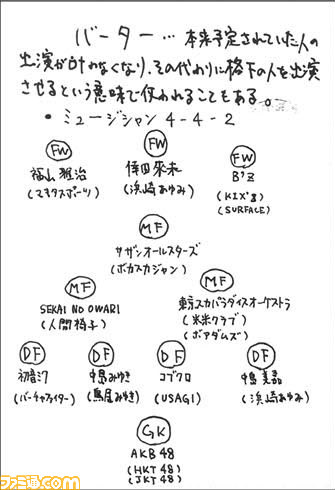 バーター… 本来予定されていた人の
出演が叶わなくなり、その代わりに格下の人を出演
させるという意味で使われることもある。
・ミュージシャン 4-4-2
FW FW FW
福山雅治 倖田來未 B'z
(マキタスポーツ) (浜崎あゆみ) (KIX'S)
(SURFACE)
MF
サザンオールスターズ
(ポカスカジャン)
MF MF
SEKAI NO OWARI 東京スカパラダイスオーケストラ
(人間椅子) (米米クラブ)
(ボアダムズ)
DF DF DF DF
初音ミク 中島みゆき コブクロ 中島美嘉
(バーチャファイター) (鳥居みゆき) (USAGI) (浜崎あゆみ)
GK
AKB48
(HKT48)
(JKT48)
ファミ通.com